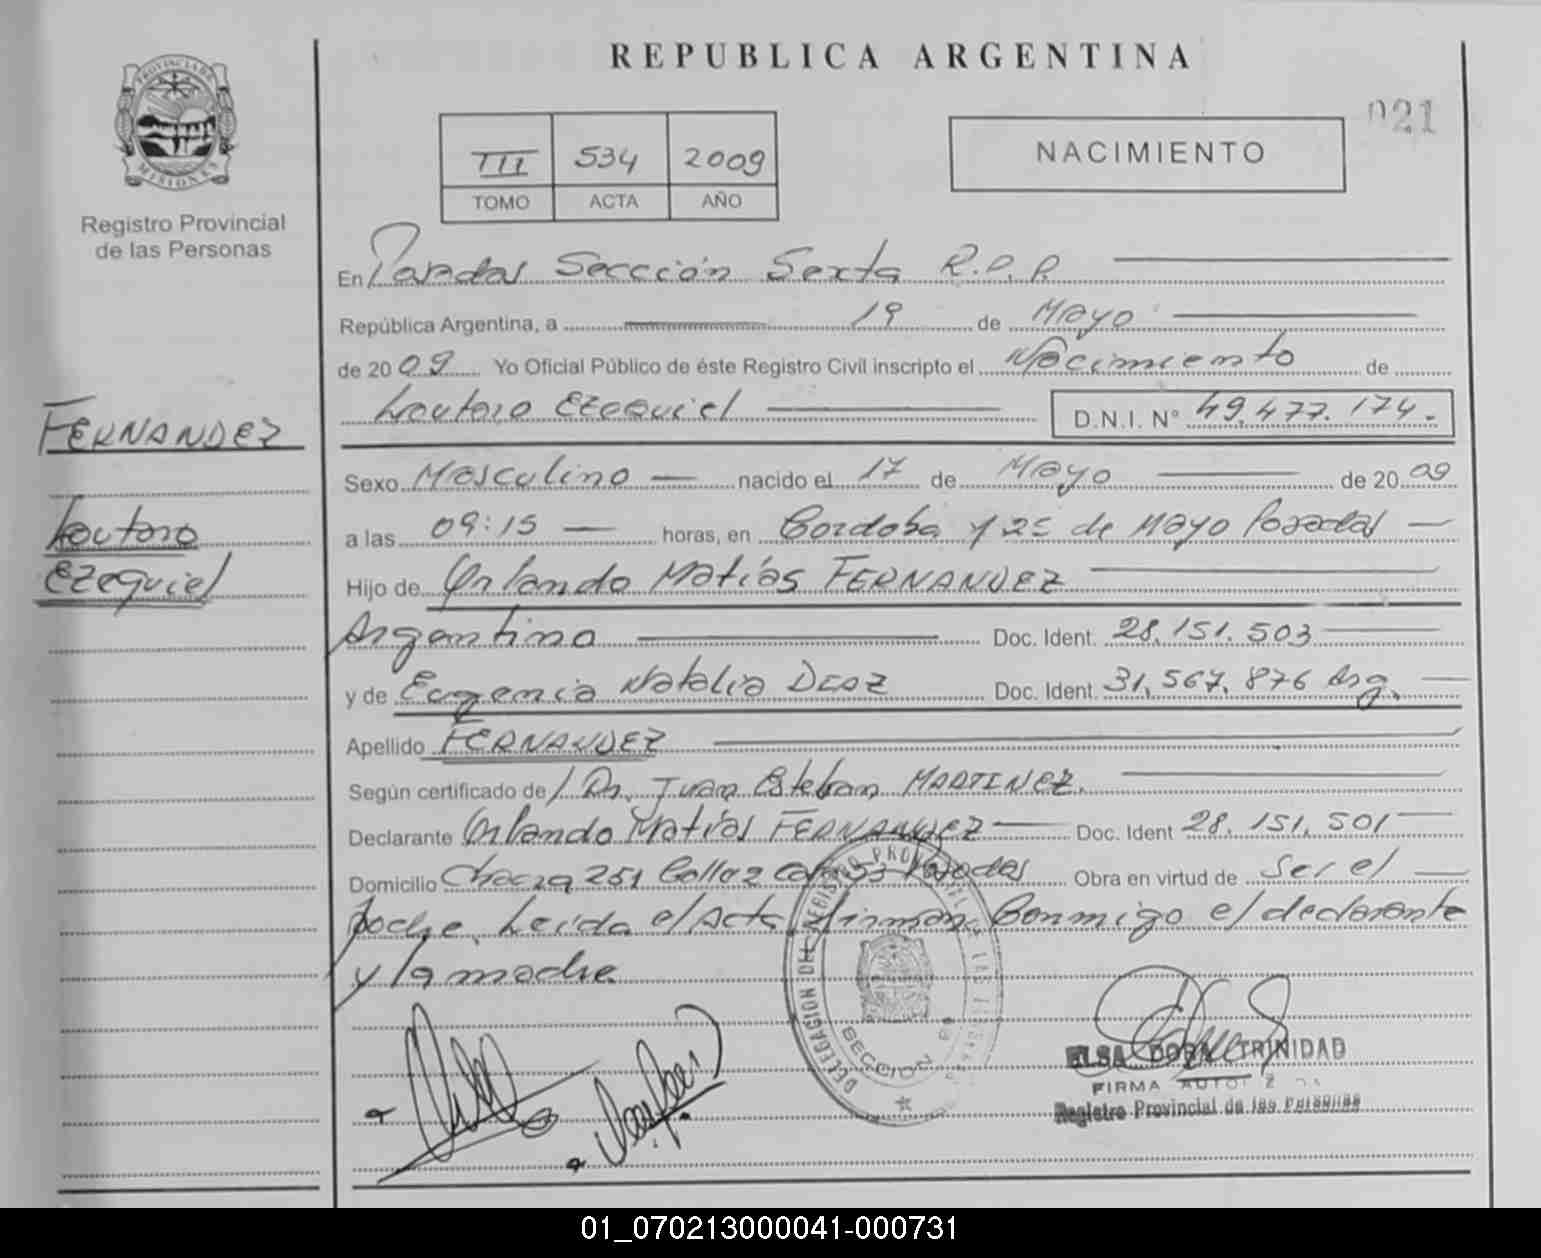 REPUBLICA ARGENTINA
021
PROVINCIA DE
MISIONES
Registro Provincial
de las Personas
III 534 2009
TOMO ACTA AÑO
NACIMIENTO
En Posadas Sección Sexta R.P.P.
República Argentina, a 19 de Mayo
de 2009 Yo Oficial Público de éste Registro Civil inscripto el Nacimiento de
Lautaro Ezequiel D.N.I. N° 49.477.174.
FERNANDEZ
Lautaro
Ezequiel
Sexo Masculino nacido el 17 de Mayo de 2009
a las 09:15 horas, en Cordoba y 25 de Mayo Posadas
Hijo de Orlando Matías FERNANDEZ
Argentino Doc. Ident. 28.151.503
y de Eugenia Natalia DIAZ Doc. Ident. 31.567.876 Arg.
Apellido FERNANDEZ
Según certificado de Dr. Juan Esteban MARTINEZ.
Declarante Orlando Matías FERNANDEZ Doc. Ident 28.151.501
Domicilio Chacra 251 Calle 2 Casa 53 Posadas Obra en virtud de Ser el
padre. Leída el Acta, firman Conmigo el declarante
y la madre
DELEGACION DEL REGISTRO PROVINCIAL DE LAS
SECCION
ELSA DORA TRINIDAD
FIRMA
Registro Provincial de las Personas
01_070213000041-000731